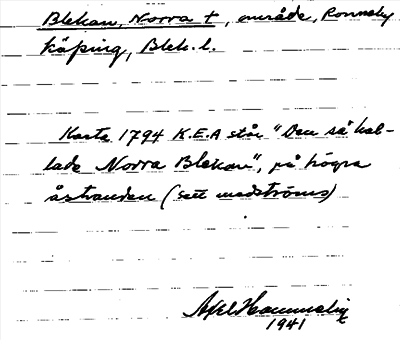 Blekan, Norra †, område, Ronneby
köping, Blek. l.
Karta 1794 K.E.A står "Den så kal-
lade Norra Blekan", på högra
åstranden (sett medströms)
Axel Hammelin
1941